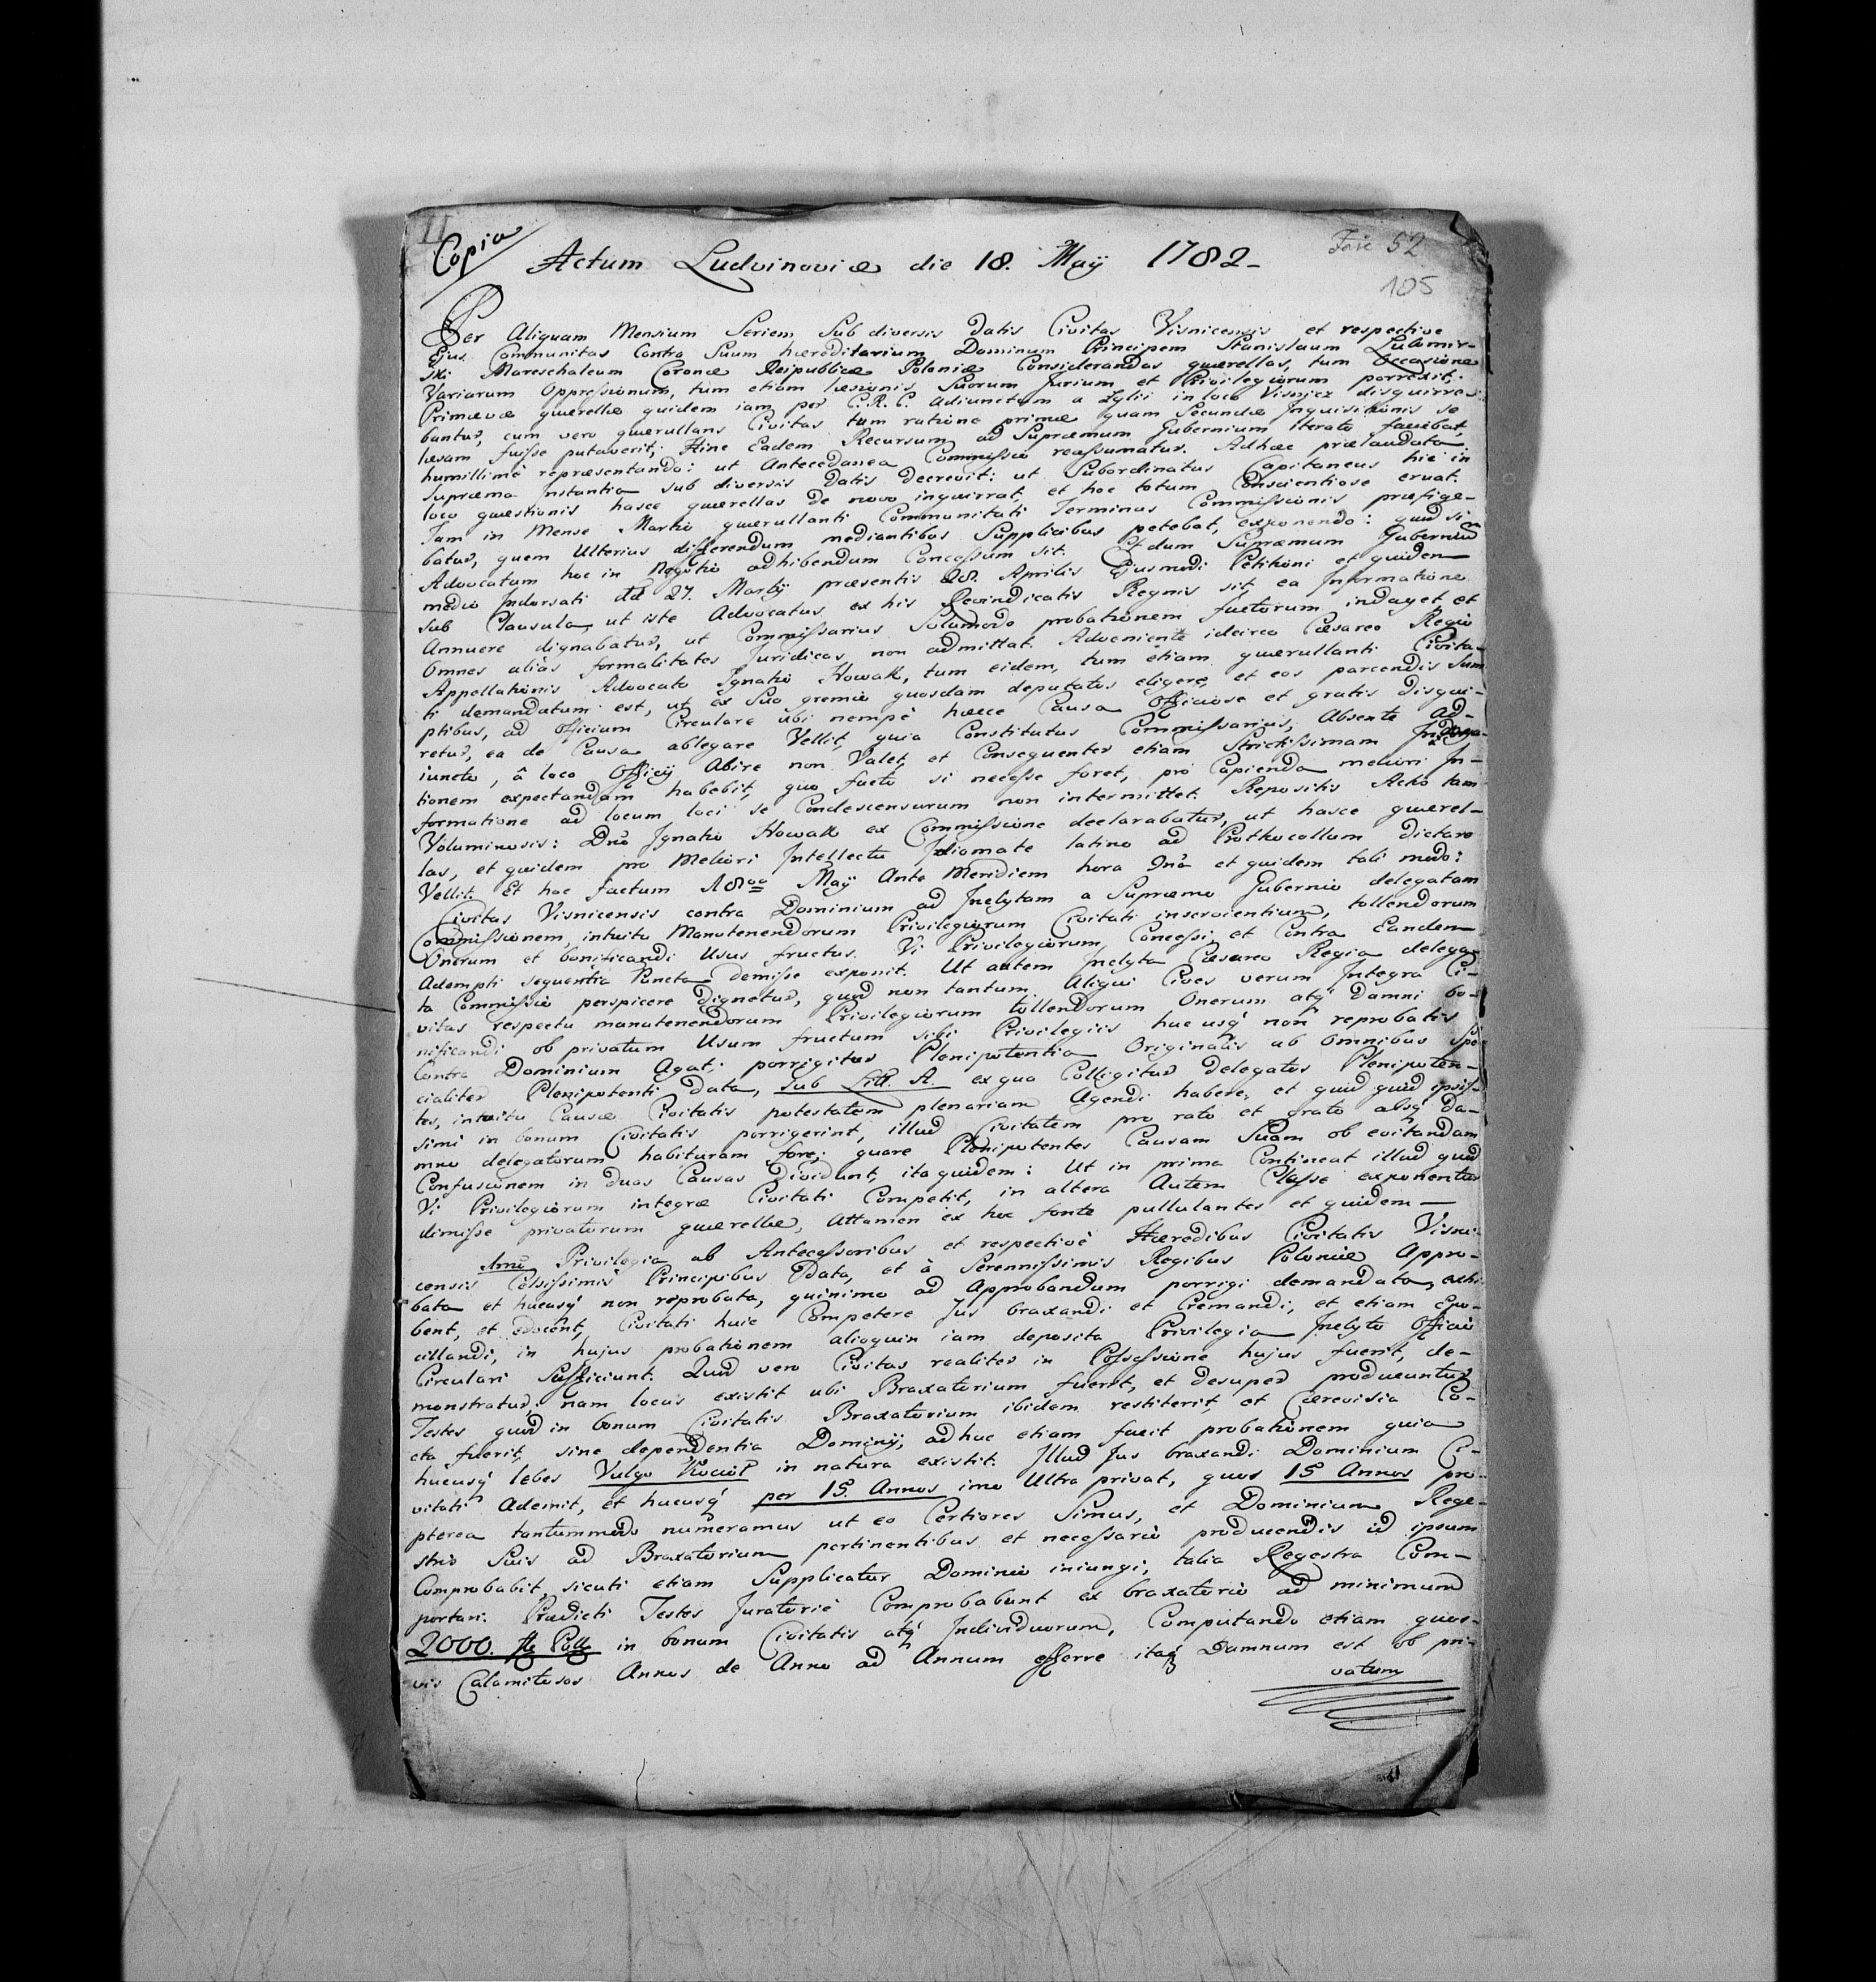 II
Copia
Fasc 52
Actum Ludvinoviæ die 18. Maÿ 1782-
105
Per Aliquam Mensium Seriem Sub diversis Datis Civitas Visnicensis et respective
Ejus Communitas Contra Suum hæreditarium Dominum Principem Stanislaum Lubomir-
ski Mareschalcum Coronæ Reipublicæ Poloniæ Considerandas quærellas, tum occasione
Variarum Oppressionum, tum etiam læsionis Suorum Jurium et Privilegiorum porrexit;
Primævæ quærellæ quidem iam per C.R.C. Adiunctum a in loco Visnicz disquirre-
bantur, cum vero quærullans Civitas tum ratione primæ quam Secundæ Inquisitionis se
læsam fuisse putaverit; Hinc Eadem Recursum ad Supræmum Gubernium Iterato faciebat,
humillimè repræsentando: ut Antecedanea Commissio reassumatur. Adhæc prælaudata
Supræma Instantia sub diversis Datis decrevit: ut Subordinatus Capitaneus hic in
loco quæstionis hasce quærellas de novo inquirrat, et hoc totum Conscientiose eruat.
Jam in Mense Martio quærullanti Communitati Terminus Commissionis præfige-
batur, quem Ulterius differendum mediantibus Supplicibus petebat, exponendo: quod si
Advocatum hoc in Negotio adhibendum Concessum sit. Et dum Supræmum Gubernium
medio Indorsati dd 27. Martÿ præsentis 28. Aprilis Ejusmodi Petitioni et quidem
sub Clausula, ut iste Advocatus ex his Revindicatis Regnis sit, ea Informatione
Annuere dignabatur, ut Commissarius Solummodo probationem factorum indaget et
Omnes aliàs formalitates Juridicas non admittat. Adveniente idcirco Cæsareo Regio
Appellationis Advocato Ignatio Nowak, tum eidem, tum etiam quærullanti Civita-
ti demandatum est, ut ex Suo gremio quosdam deputatos eligere, et eos parcendis Sum-
ptibus, ad Officium Circulare ubi nempè hæcce Causa Officiose et gratis disqui-
retur, ea de Causa ablegare Vellit, quia Constitutus Commissarius, Absente Ad-
iuncto, â loco Officÿ Abire non Valet, et Consequenter etiam Strictissimam
tionem expectandam habebit, quo facto si necesse foret, pro Capienda meliori In-
formatione ad locum loci se Condescensurum non intermittet. Repositis Actis tam
Voluminosis: Dno Ignatio Nowak ex Commissione declarabatur, ut hasce quærel-
las, et quidem pro Meliori Intellectu Idiomate latino ad Prothocollum dictare
Vellit. Et hoc factum 18 Maÿ Ante Meridiem hora et quidem tali modo:
Civitas Visnicensis contra Dominium ad Inclytam a Supræmo Gubernio delegatam
Commissionem, intuitu Manutenendorum Privilegiorum Civitati inservientium, tollendorum
Onerum et bonificandi Usus fructus. Vi Privilegiorum, Concessi, et Contra Eandem
Adempti sequentia Puncta demisse exponit. Ut autem Inclyta Cæsareo Regia delega-
ta Commissio perspicere dignetur, quod non tantum Aliqui Cives verum Integra Ci-
vitas respectu manutenendorum Privilegiorum tollendorum Onerum atq damni bo-
nificandi ob privatum Usum fructum sibi Privilegiis huc usq non reprobatis
Contra Dominium Agat; porrigitur Plenipotentia Originalis ab Omnibus spe-
cialiter Plenipotenti data, sub Litt. A. ex qua Colligitur delegatos Plenipoten-
tes, intuitu Causæ Civitatis potestatem plenariam Agendi habere, et quid quid ipsis-
simi in bonum Civitatis porrigerint, illud Civitatem pro rato et grato absq da-
mno delegatorum habituram fore; quare Plenipotentes Causam Suam ob evitandam
Confusionem in duas Causas Dividunt, ita quidem: Ut in prima Contineat illud quod
Vi Privilegiorum integræ Civitati Competit, in altera Autem Classe exponentur
dimisse privatorum quærellæ, Attamen ex hoc fonte pullulantes et quidem —
1mo Privilegia ab Antecessoribus et respectivè Hæredibus Civitatis Visni-
censis Celsissimis Principibus Data, et à Serenissimis Regibus Poloniæ Appro-
bata et hucusq non reprobata, quinimo ad Approbandum porrigi demandata, exhi-
bent, et edocent, Civitati huic Competere Jus braxandi et Cremandi, et etiam Epo-
cillandi, in hujus probationem alioquin iam deposita Privilegia Inclyto Officio
Circulari Sufficiunt. Quod vero Civitas realiter in Possessione hujus fuerit, de-
monstratur, nam locus existit ubi Braxatorium fuerit, et desuper producuntur
Testes quod in bonum Civitatis Braxatorium ibidem restiterit, et Cærevisia Co-
cta fuerit, sine dependentia Dominÿ, adhuc etiam facit probationem quia
hucusq lebes Vulgo Kocioł in natura existit. Illud Jus braxandi Dominium Ci-
vitati Ademit, et hucusq per 15. Annos imo Ultra privat, quos 15 Annos pro-
pterea tantummodo numeramus ut eo Certiores Simus, et Dominium Rege-
stris Suis ad Braxatorium pertinentibus et necessariò producendis id ipsum
Comprobabit, sicuti etiam Supplicatur Dominio iniungi; talia Regestra Com-
portari. Prædicti Testes Juratoriè Comprobabunt ex braxatorio ad minimum
2000. fl Poll in bonum Civitatis atq Individuorum, Computando etiam quos-
vis Calamitosos Annos de Anno ad Annum efferre itaq Damnum est ob pri-
vatum